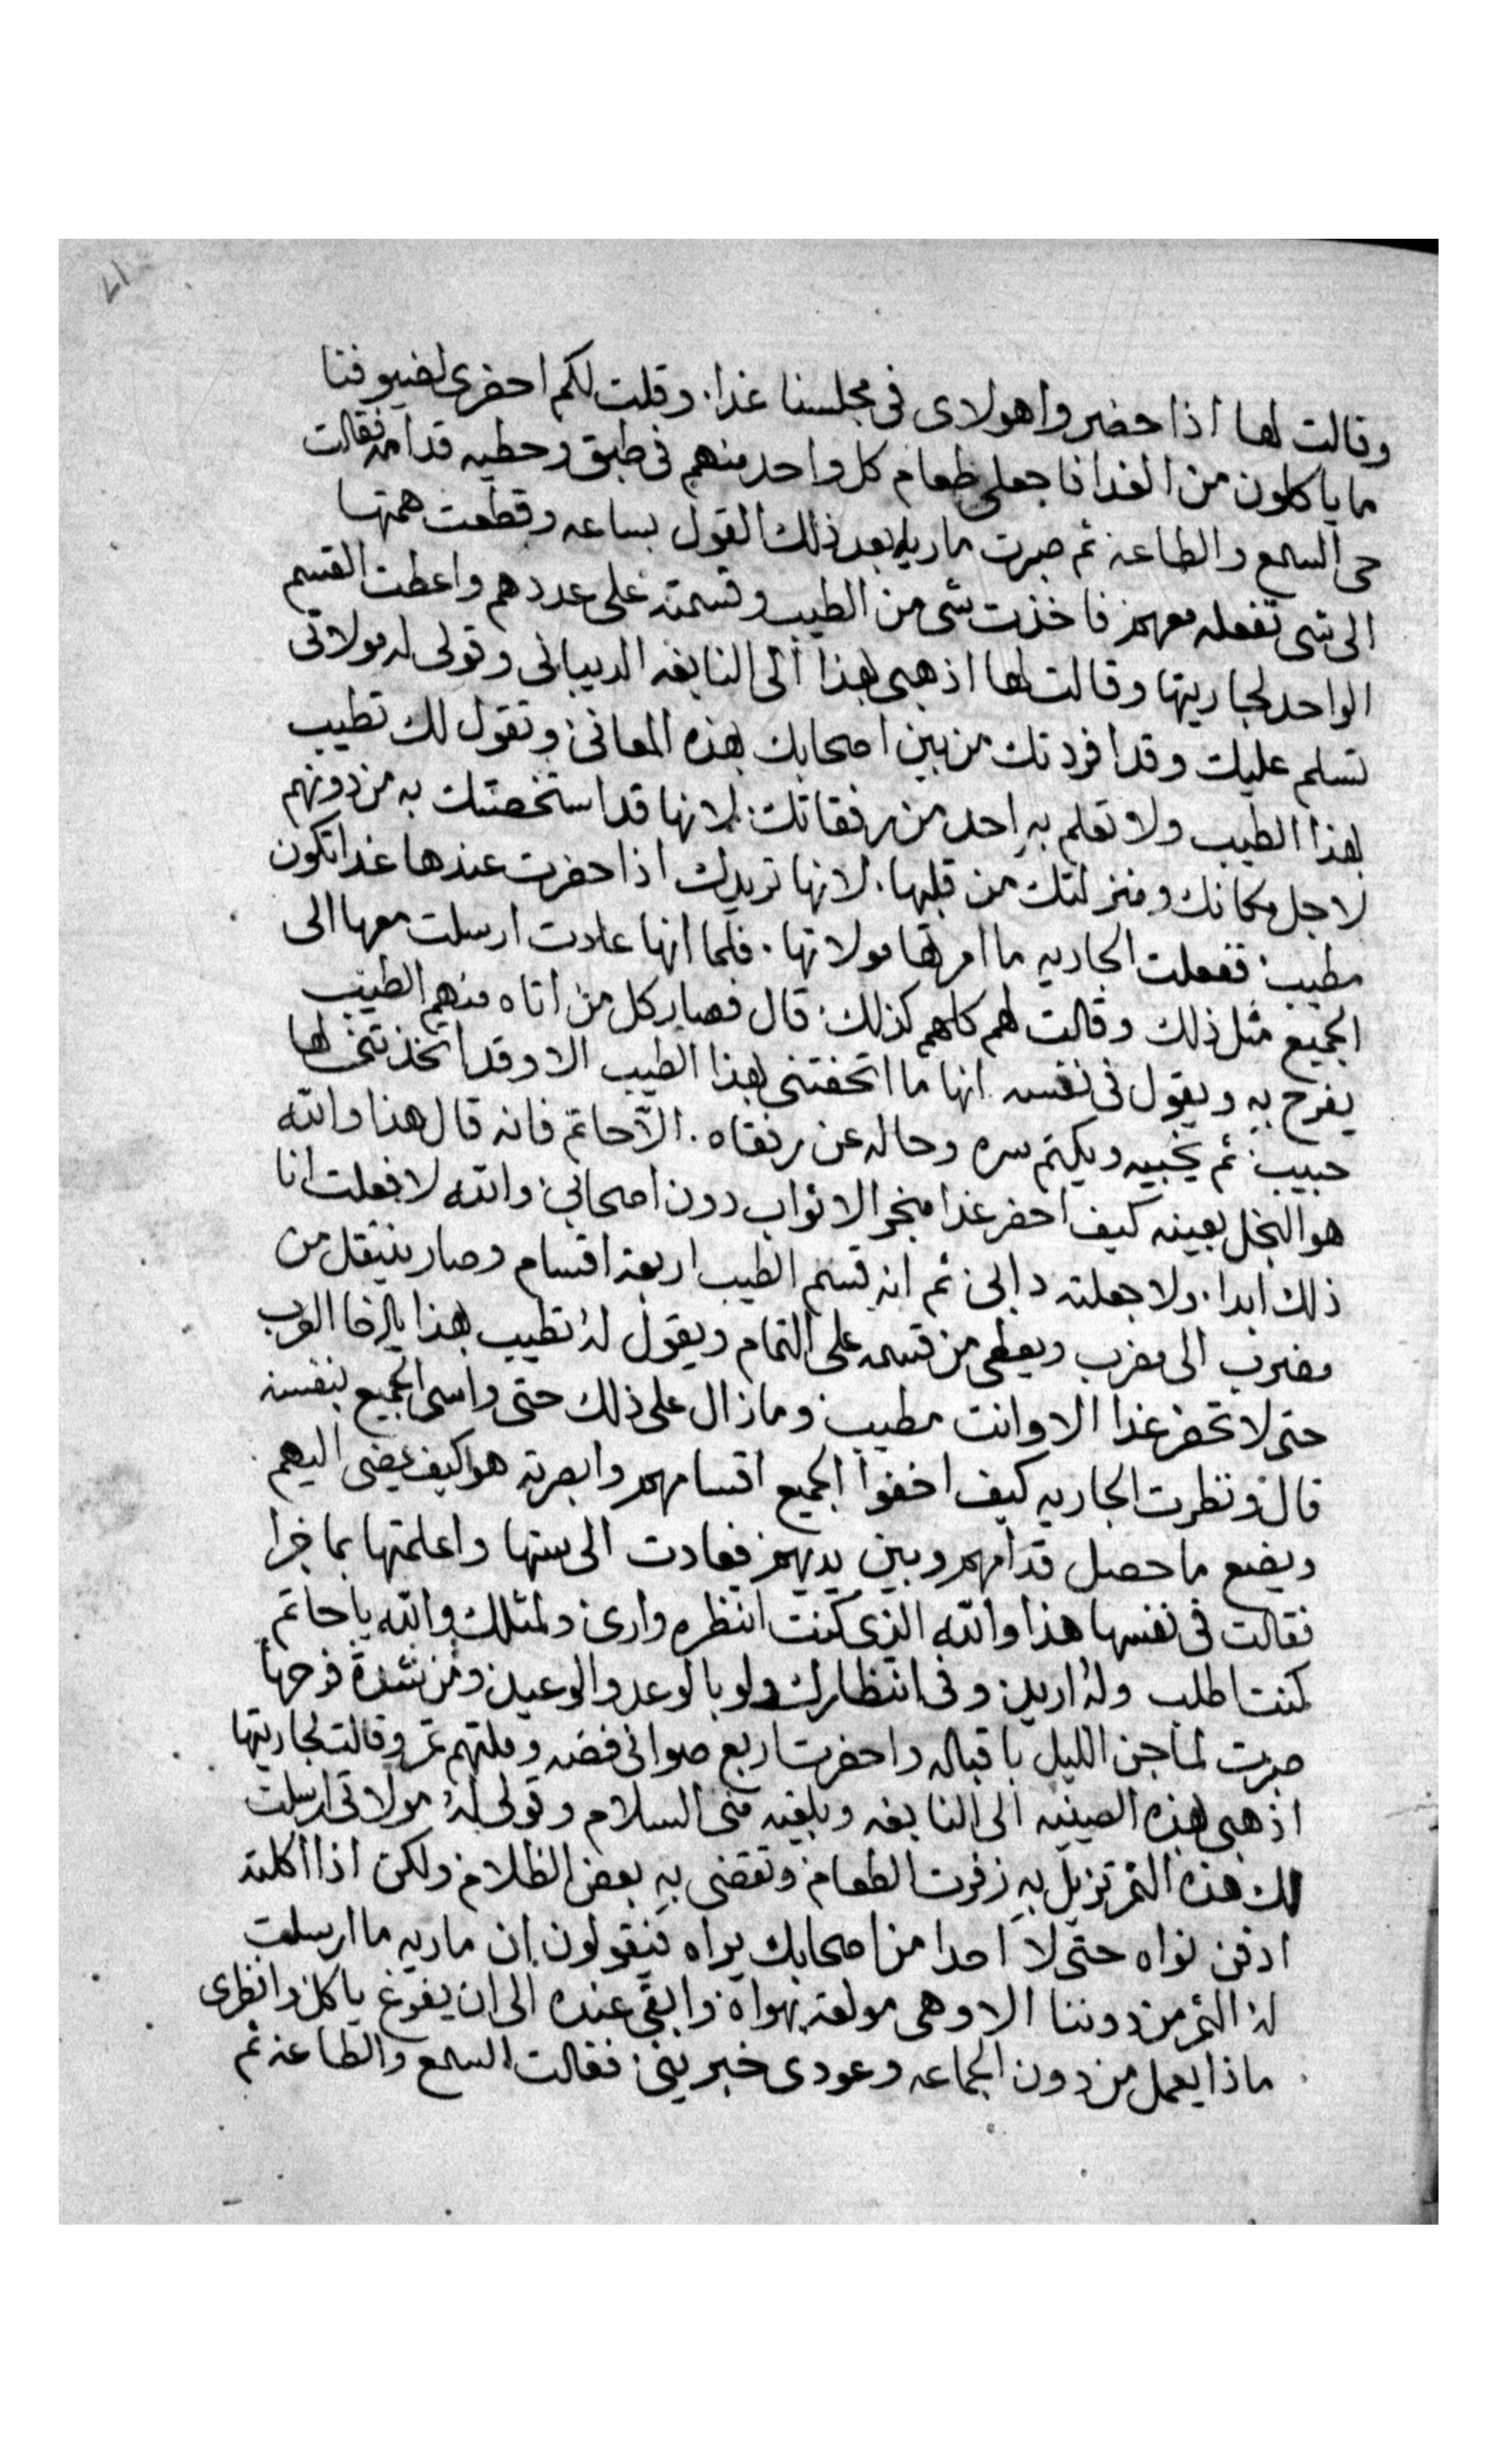 ١٧
وقالت لها اذا حضروا هولاى فى مجلسنا غدا. وقلت لكم احضرى لضيوفنا
ما ياكلون من الغدا فاجعلى طعام كل واحد منهم فى طبق وحطيه قدامه فقالت
حى السمع والطاعه ثم صبرت ماريه بعد ذلك القول بساعه وقطعت همتها
الى شى تفعله معهم فاخذت شى من الطيب وقسمته على عددهم واعطت القسم
الواحد لجاريتها وقالت لها اذهبى بهذا الى النابغه الديبانى وقولى له مولاتى
تسلم عليك وقد افردتك من بين اصحابك بهذه المعانى وتقول لك تطيب
بهذا الطيب ولا تعلم به احد من رفقاتك لانها قد استخصتك به من دونهم
لاجل مكانك ومنزلتك من قلبها. لانها تريدك اذا حضرت عندها غدا تكون
مطيب ففعلت الجاريه ما امرتها مولاتها. فلما انها عادت ارسلت معها الى
الجميع مثل ذلك وقالت لهم كلهم كذلك قال فصار كل من اتاه منهم الطيب
يفرح به ويقول فى نفسه انها ما اتحفتنى بهذا الطيب الا وقد اتخذتنى لها
حبيب ثم يخبيه ويكتم سره وحاله عن رفقاه. الا حاتم فانه قال هذا والله
هو البخل بعينه كيف احضر غدا مبخر الاثواب دون اصحابى والله لا فعلت انا
ذلك ابدا. ولا جعلته دابى ثم انه قسم الطيب اربعة اقسام وصار ينتقل من
مضرب الى مضرب ويعطى من قسمه على التمام ويقول له تطيب بهذا يا اخا العرب
حتى لا تحضر غدا الا وانت مطيب وما زال على ذلك حتى واسى الجميع بنفسه
قال ونظرت الجاريه كيف اخفوا الجميع اقسامهم وابصرته هو كيف يمضى اليهم
ويضع ما حصل قدامهم وبين يديهم فعادت الى ستها واعلمتها بما جرا
فقالت فى نفسها هذا والله الذى كنت انتظره وارى ولمثلك والله يا حاتم
كنت اطلب وله اريد وفى انتظارك ولو بالوعد والوعيد ومن شدة فرحها
صبرت لما جن الليل باقباله واحضرت اربع صوانى فضه وملتهم تمر وقالت لجاريتها
اذهبى بهذه الصينيه الى النابغه وبلغيه منى السلام وقولى له مولاتى ارسلت
لك هذه التمر تزيل به زفرت الطعام وتقضى به بعض الظلام ولكن اذا اكلته
ادفن نواه حتى لا احدا من اصحابك يراه فيقولون ان ماريه ما ارسلت
له التمر من دوننا الا وهى مولعة بهواه وابقى عنده الى ان يفرغ ياكل وانظرى
ماذا يعمل من دون الجماعه وعودى خبرينى فقالت السمع والطاعه ثم